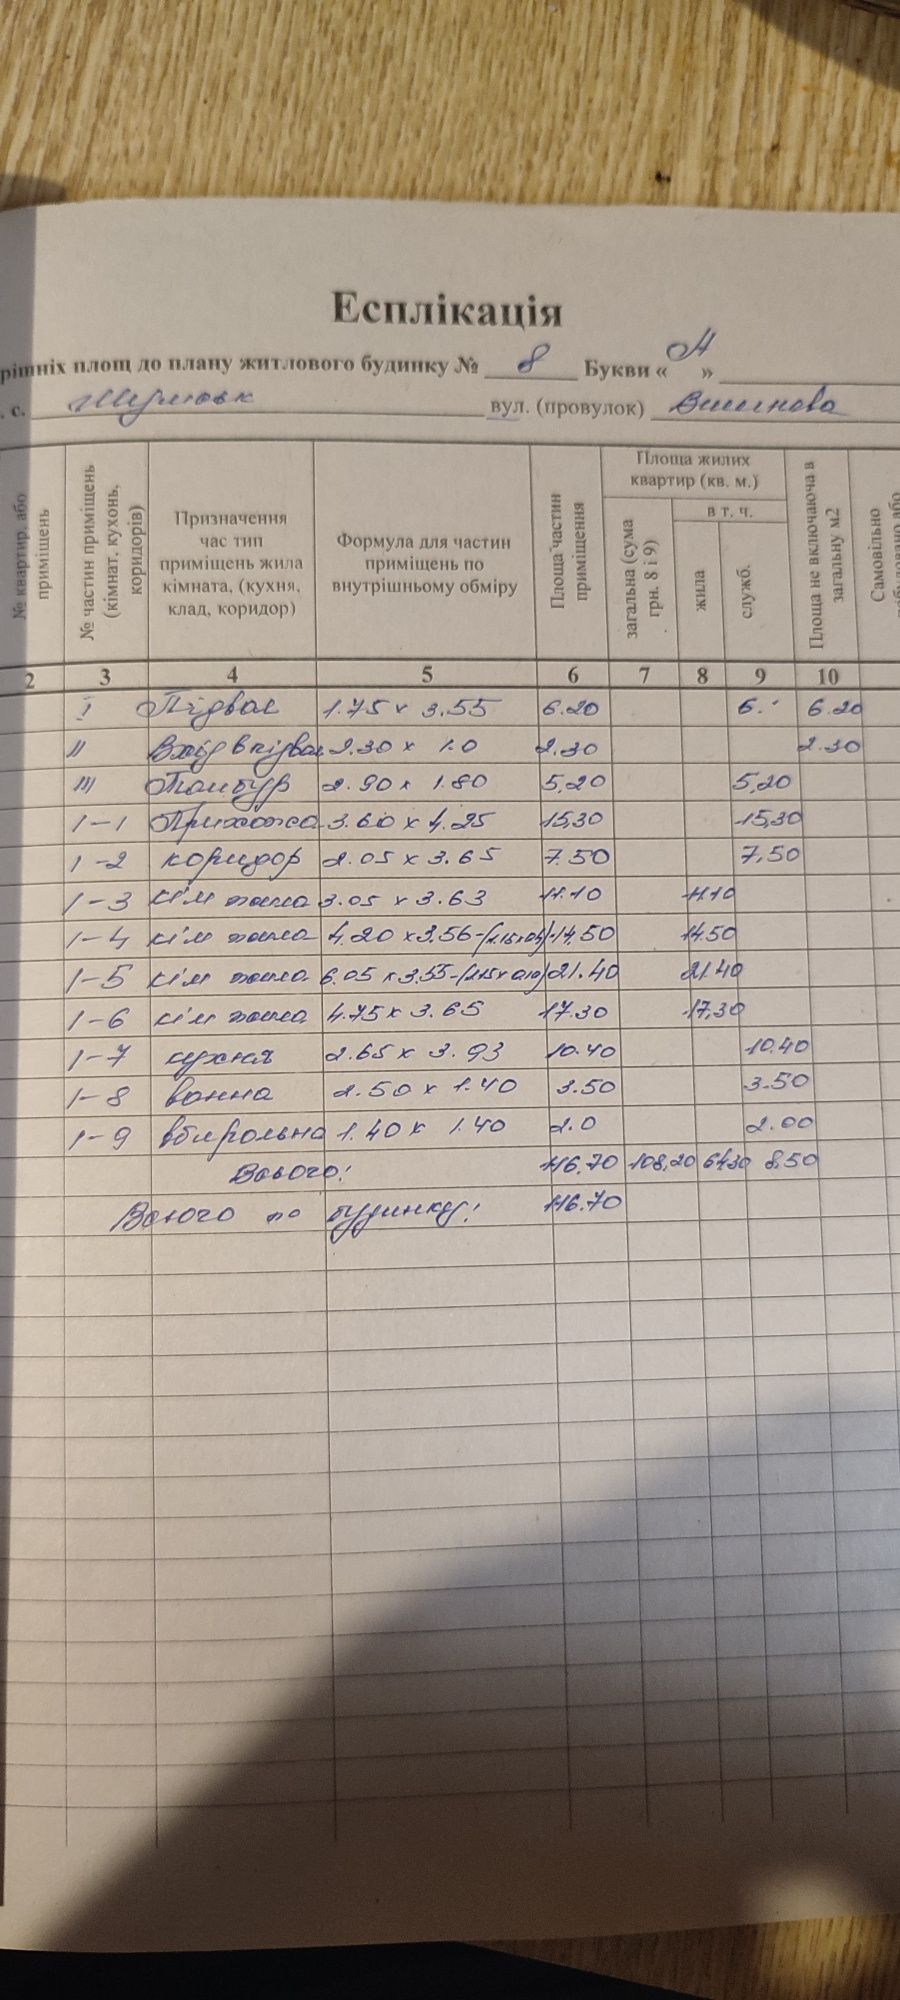 Есплікація
рішніх площ до плану житлового будинку № 8 Букви « А »
. с. вул. (провулок) Вишнева
№ квартир. або приміщень
№ частин приміщень (кімнат. кухонь, коридорів)
Призначення час тип приміщень жила кімната, (кухня, клад, коридор)
Формула для частин приміщень по внутрішньому обміру
Площа частин приміщення
Площа жилих квартир (кв. м.)
загальна (сума грн. 8 і 9)
в т. ч.
жила
служб.
Площа не включаюча в загальну м2
Самовільно
2 3 4 5 6 7 8 9 10
I Підвал 1.75 x 3.55 6.20 6. 6.20
II Вхід в підвал 2.30 x 1.0 2.30 2.30
III Тамбур 2.90 x 1.80 5,20 5,20
1-1 Прихожа 3.60 x 4.25 15,30 15,30
1-2 коридор 2.05 x 3.65 7.50 7,50
1-3 кім жила 3.05 x 3.63 11.10 11.10
1-4 кім жила 4.20 x 3.56-( 14.50 14.50
1-5 кім жила 6.05 x 3.55-( 21.40 21.40
1-6 кім жила 4.75 x 3.65 17.30 17,30
1-7 кухня 2.65 x 3.93 10.40 10.40
1-8 ванна 2.50 x 1.40 3.50 3.50
1-9 вбиральна 1.40 x 1.40 2.0 2.00
Всього: 116.70 108,20 64.30 8,50
Всього по будинку: 116.70